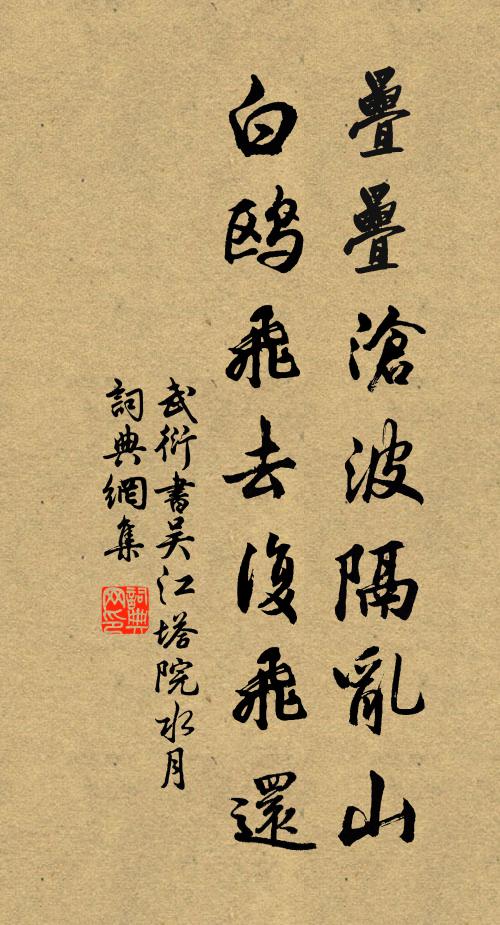 疊疊滄波隔亂山
白鸥飛去復飛還
武衍書吴江塔院水月
詞典網集
詞典网印